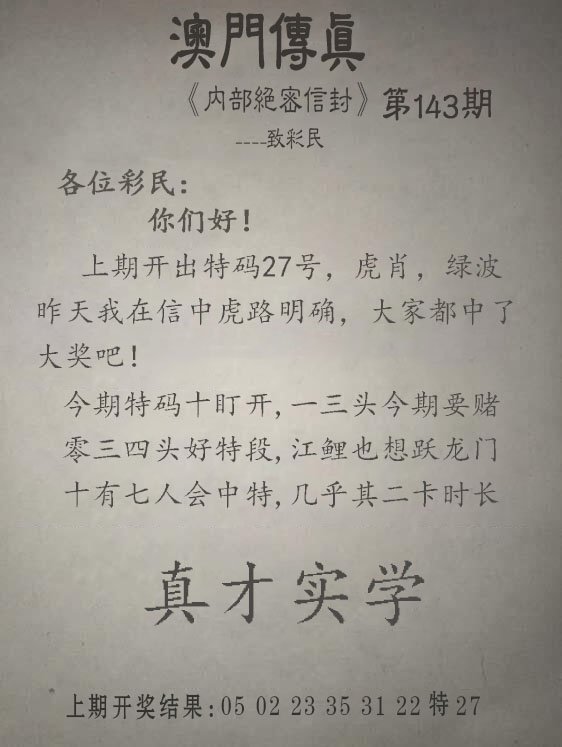 澳門傳眞
《内部絕密信封》第143期
----致彩民
各位彩民：
你们好！
上期开出特码27号，虎肖，绿波
昨天我在信中虎路明确，大家都中了
大奖吧！
今期特码十盯开,一三头今期要赌
零三四头好特段,江鲤也想跃龙门
十有七人会中特,几乎其二卡时长
真才实学
上期开奖结果:05 02 23 35 31 22 特 27